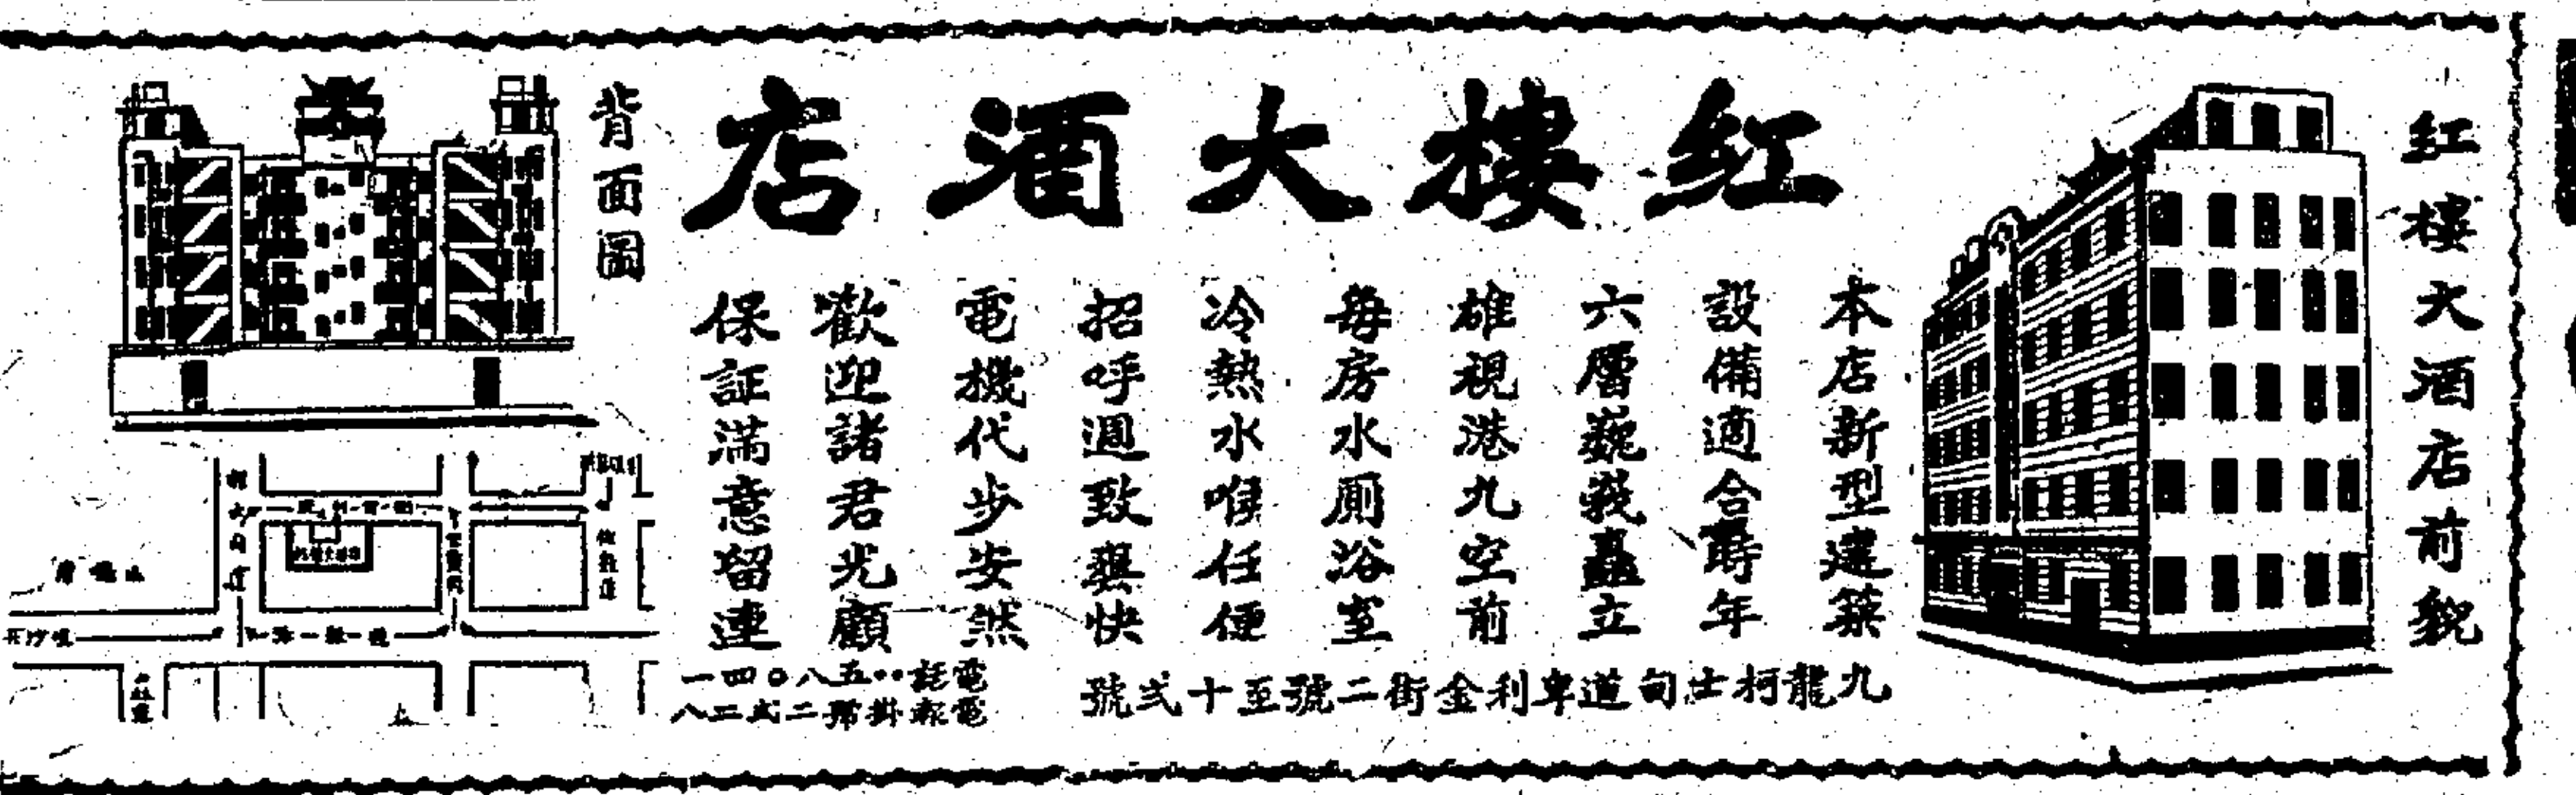 紅樓大酒店前貌
紅樓大酒店
本店新型建築
設備適合爵年
六層巍峩矗立
雄視港九空前
每房水厠浴室
冷熱水喉任便
招呼週致爽快
電機代步安然
歡迎諸君光顧
保証滿意留連
九龍柯士甸道卑利金街二號至十弍號
電話··五八〇四一
電報掛號二弍二八
背面圖